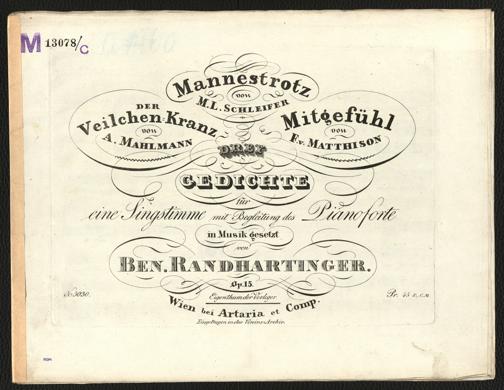 M 13078/c
Mannestrotz
von
M.L. SCHLEIFER
DER
Veilchen-Kranz
von
A. MAHLMANN
Mitgefühl
von
F.v. MATTHISON
DREY
GEDICHTE
für
eine Singstimme mit Begleitung des Pianoforte
in Musik gesetzt
von
BEN. RANDHARTINGER.
Op.15.
No. 3030.
Eigenthum der Verleger.
Pr. 45 x. C.M.
Wien bei Artaria et Comp.
Eingetragen in das Vereins-Archiv.